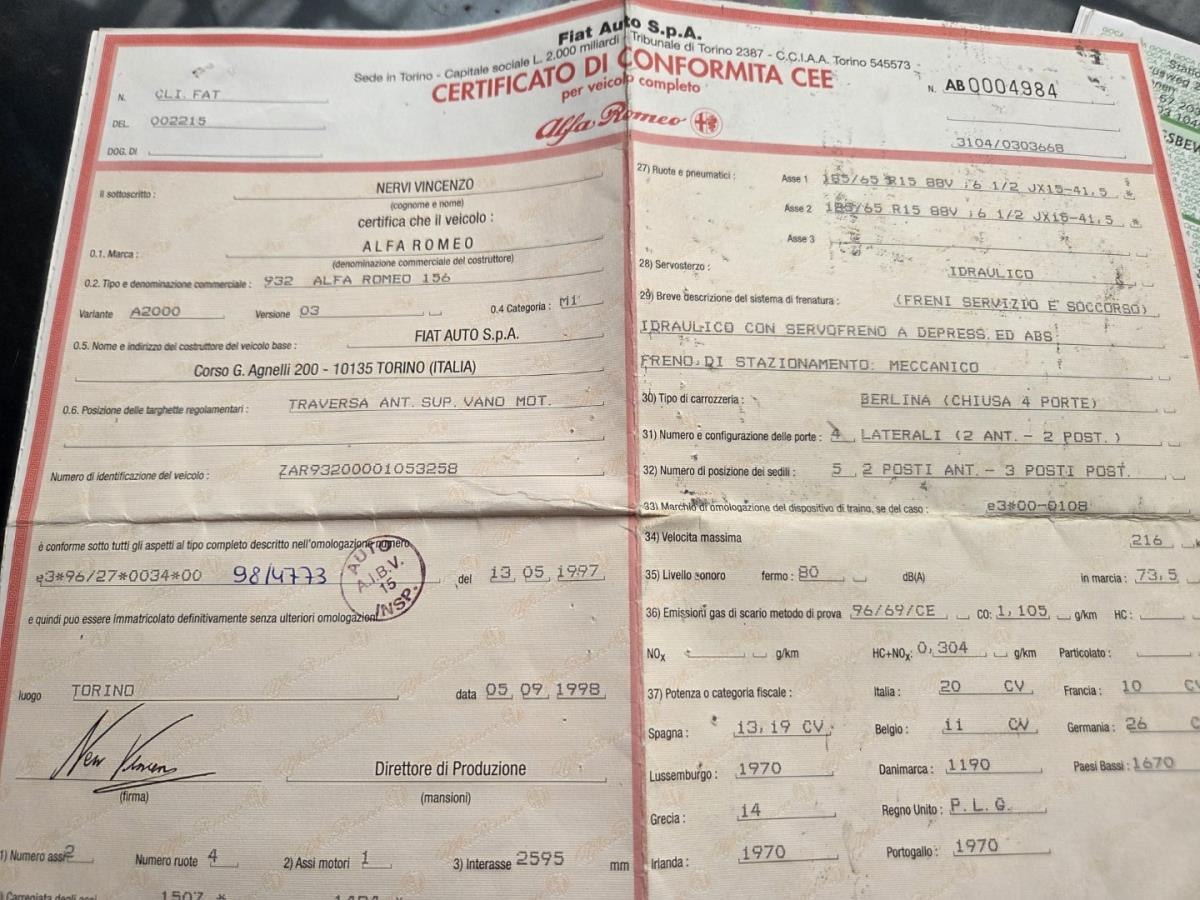 Fiat Auto S.p.A.
Sede in Torino - Capitale sociale L. 2.000 miliardi - Tribunale di Torino 2387 - C.C.I.A.A. Torino 545573
CERTIFICATO DI CONFORMITA CEE
per veicolo completo
Alfa Romeo
N. CLI. FAT
DEL 002215
DOG. DI
N. AB0004984
3104/0303668
Il sottoscritto : NERVI VINCENZO
(cognome e nome)
certifica che il veicolo :
0.1. Marca : ALFA ROMEO
(denominazione commerciale del costruttore)
0.2. Tipo e denominazione commerciale : 932 ALFA ROMEO 156
Variante A2000 Versione 03 0.4 Categoria : M1
0.5. Nome e indirizzo del costruttore del veicolo base : FIAT AUTO S.p.A.
Corso G. Agnelli 200 - 10135 TORINO (ITALIA)
0.6. Posizione delle targhette regolamentari : TRAVERSA ANT. SUP. VANO MOT.
Numero di identificazione del veicolo : ZAR93200001053258
è conforme sotto tutti gli aspetti al tipo completo descritto nell'omologazione numero
e3*96/27*0034*00 98/4773 del 13 05 1997
AUTO
A.I.B.V.
15
INSP.
e quindi può essere immatricolato definitivamente senza ulteriori omologazioni
luogo TORINO data 05 09 1998
Direttore di Produzione
(firma) (mansioni)
1) Numero assi 2 Numero ruote 4 2) Assi motori 1 3) Interasse 2595 mm
1507 *
27) Ruote e pneumatici : Asse 1 185/65 R15 88V ;6 1/2 JX15-41,5 *
Asse 2 185/65 R15 88V ;6 1/2 JX15-41,5 *
Asse 3
28) Servosterzo : IDRAULICO
29) Breve descrizione del sistema di frenatura : (FRENI SERVIZIO E SOCCORSO)
IDRAULICO CON SERVOFRENO A DEPRESS. ED ABS
FRENO DI STAZIONAMENTO: MECCANICO
30) Tipo di carrozzeria : BERLINA (CHIUSA 4 PORTE)
31) Numero e configurazione delle porte : 4 LATERALI (2 ANT. - 2 POST.)
32) Numero di posizione dei sedili : 5 2 POSTI ANT. - 3 POSTI POST.
33) Marchio di omologazione del dispositivo di traino, se del caso : e3*00-0108
34) Velocita massima 216
35) Livello sonoro fermo : 80 dB(A) in marcia : 73,5
36) Emissioni gas di scario metodo di prova 96/69/CE CO: 1,105 g/km HC :
NOx g/km HC+NOx: 0,304 g/km Particolato :
37) Potenza o categoria fiscale : Italia : 20 CV Francia : 10
Spagna : 13,19 CV Belgio : 11 CV Germania : 26
Lussemburgo : 1970 Danimarca : 1190 Paesi Bassi : 1670
Grecia : 14 Regno Unito : P.L.G.
Irlanda : 1970 Portogallo : 1970